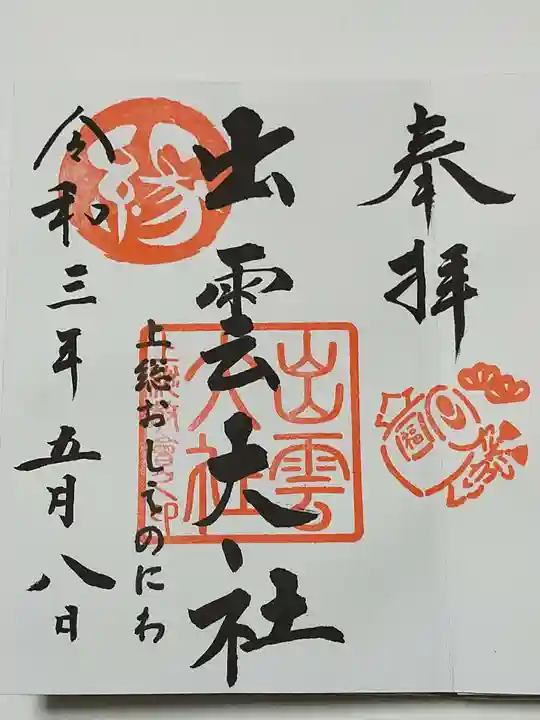 奉拝
福
出雲大社
出雲大社
上総おしえのにわ
縁
令和三年五月八日